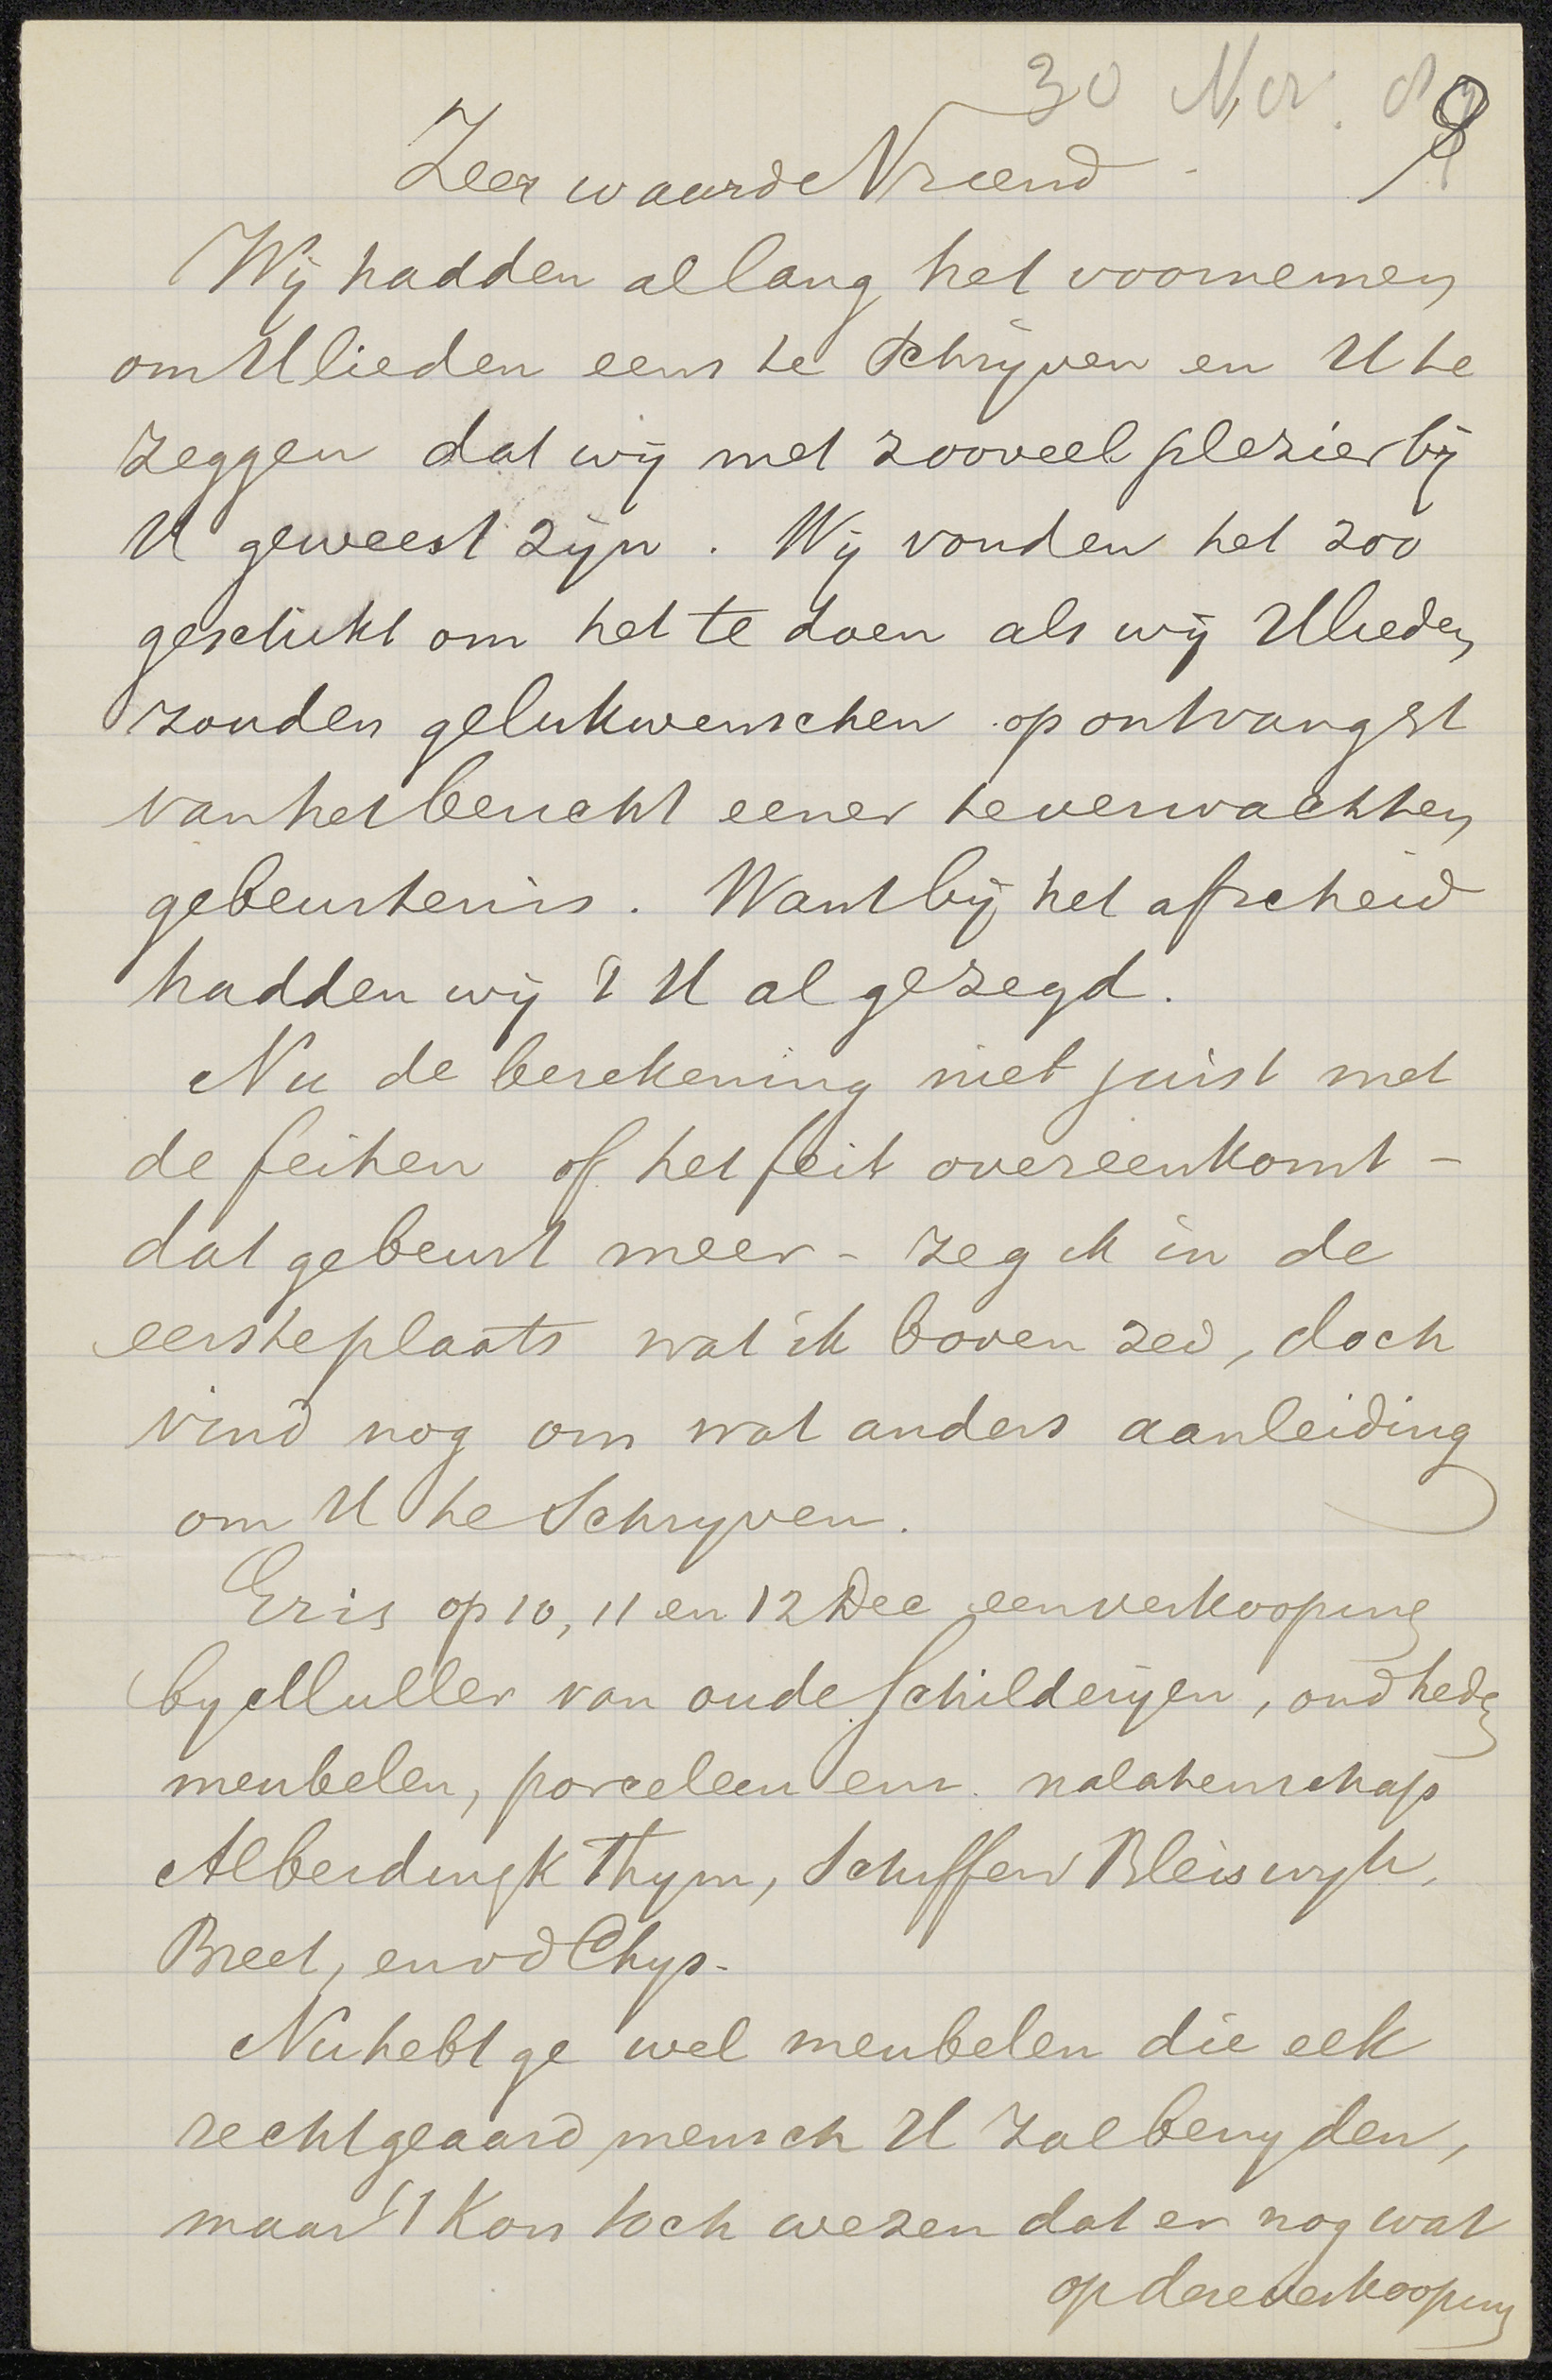 30 Nov. 89
Zeer waarde Vriend
Wij hadden al lang het voornemen
om Ulieden eens te schrijven en U te
zeggen dat wij met zooveel plezier bij
U geweest zijn. Wij vonden het zoo
geschikt om het te doen als wij Ulieden
zouden gelukwenschen op ontvangst
van het bericht eener te verwachten
gebeurtenis. Want bij het afscheid
hadden wij 't U al gezegd.
Nu de berekening niet juist met
de feiten of het feit overeenkomt -
dat gebeurt meer - zeg ik in de
eerste plaats wat ik boven zed, doch
vind nog om wat anders aanleiding
om U te schryven.
Er is op 10, 11 en 12 Dec een verkooping
by Muller van oude schilderijen, oudheden
meubelen, porcelein enz. nalatenschap
Alberdingk Thym, Schiffer Bleiswyk,
Breet, en vd Chys.
Nu hebt ge wel meubelen die elk
rechtgeaard mensch U zal benyden,
maar 't Kon toch wezen dat er nog wat
op deze verkooping